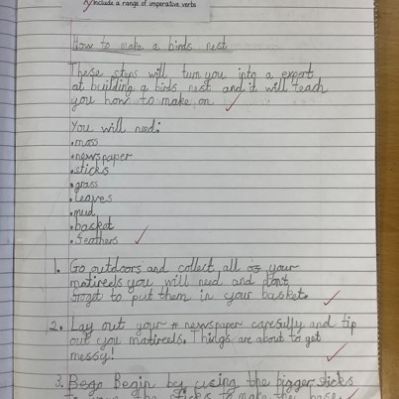 include a range of imperative verbs
How to make a birds nest
These steps will turn you into a expert
at building a birds nest and it will teach
you how to make on
You will need:
•moss
•newspaper
•sticks
•grass
•leaves
•mud
•basket
•feathers
1. Go outdoors and collect all your
matireels you will need and dont
forget to put them in your basket.
2. Lay out your newspaper carefully and tip
out you matireels. Things are about to get
messy!
3. Bego Begin by using the bigger sticks
the sticks to make the base